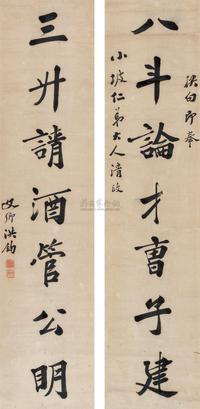 八斗論才曹子建
小坡仁弟大人清政
三升請酒管公明
文卿洪鈞